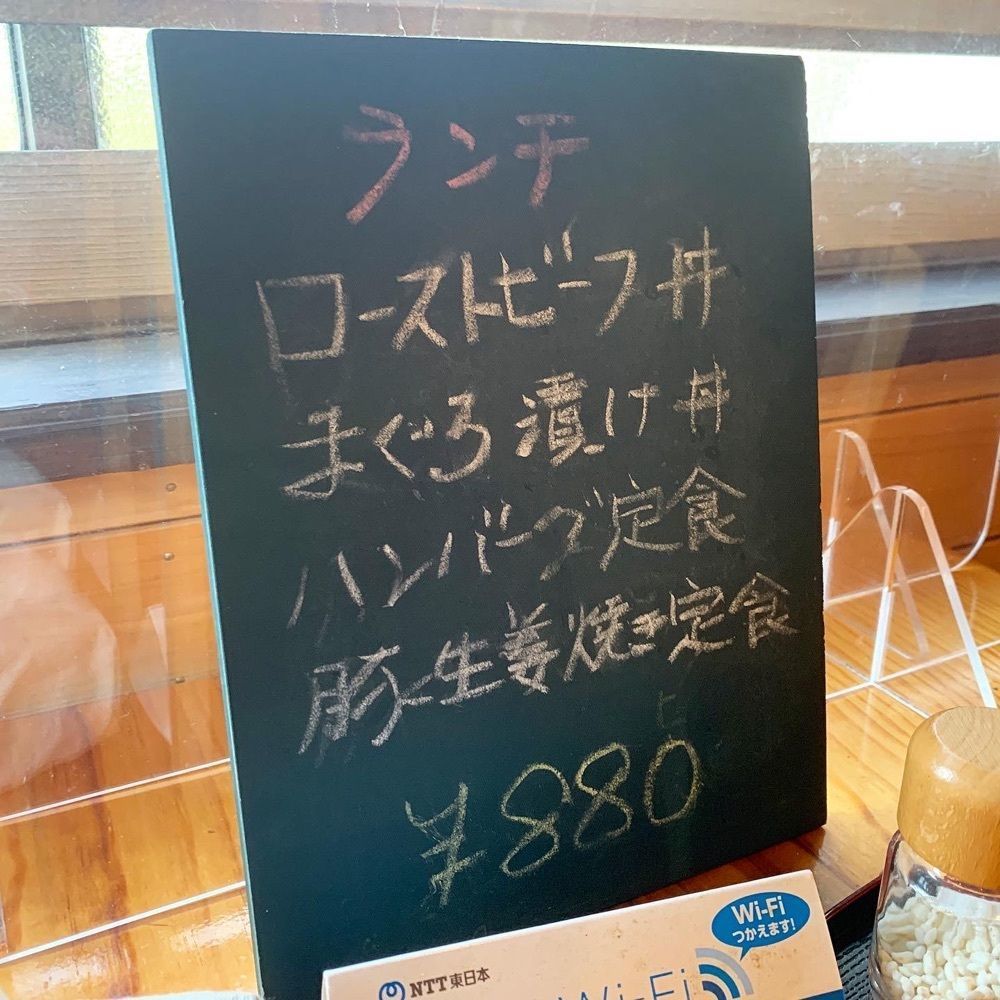 ランチ
ローストビーフ丼
まぐろ漬け丼
ハンバーグ定食
豚生姜焼き定食
¥880
Wi-Fi
つかえます!
NTT東日本
Wi-Fi